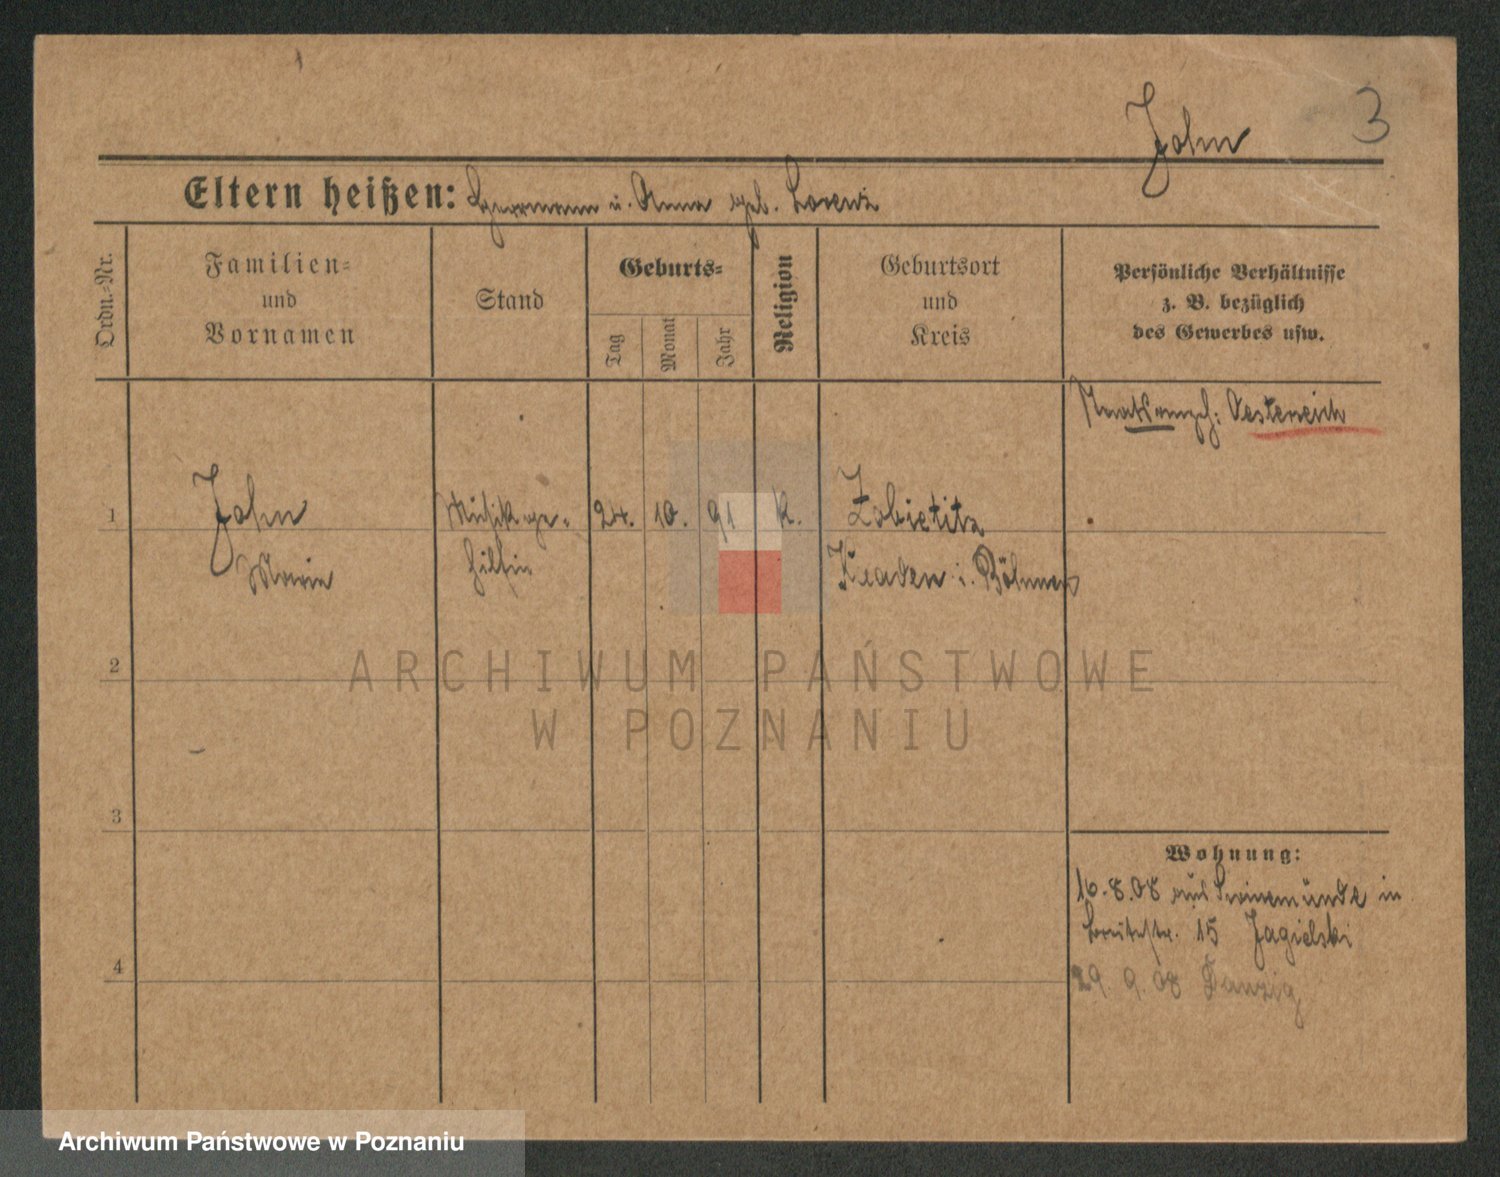 John 3
Eltern heißen: Herrmann u. Anna geb. Lorenz
Ordn.-Nr.
Familien-
und
Vornamen
Stand
Geburts-
Tag
Monat
Jahr
Religion
Geburtsort
und
Kreis
Persönliche Verhältnisse
z. B. bezüglich
des Gewerbes usw.
Staatsangeh: Oesterreich
1 John Musikge- 24. 10. 91 K. Zobietitz
Marie hilfin Kaaden i. Böhmen
2
ARCHIWUM PAŃSTWOWE
W POZNANIU
3
Wohnung:
16.8.08 aus Swinemünde in
Breitestr. 15 Jagielski
4
29. 9. 08 Danzig
Archiwum Państwowe w Poznaniu